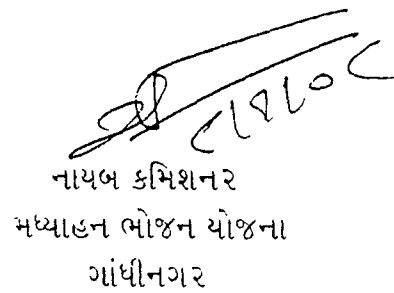 નાયબ કમિશનર
મધ્યાહન ભોજન યોજના
ગાંધીનગર